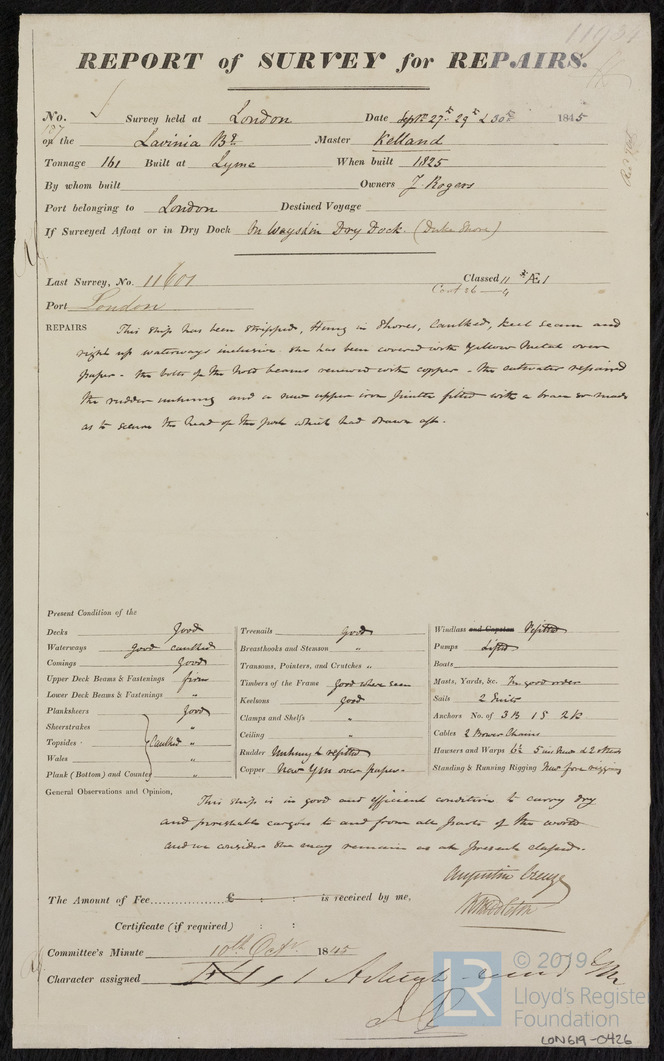 11934
REPORT of SURVEY for REPAIRS.
No. Survey held at London Date Septr 27th 29th & 30th 1845
on the Lavinia Bk. Master Kelland
Tonnage 161 Built at Lyme When built 1825
By whom built Owners J. Rogers
Port belonging to London Destined Voyage
If Surveyed Afloat or in Dry Dock On Ways & in Dry Dock. (Duke Shore)
Last Survey, No. 11601 Classed 11 * Æ 1
Cont 26 - 4
Port London
REPAIRS This ship has been stripped, Hung in Shores, Caulked, keel seam and
right up waterways inclusive. She has been covered with Yellow Metal over
paper - the bolts of the hold beams renewed with copper - the cutwater repaired
the rudder unhung and a new upper iron pintle fitted with a brace so made
as to secure the head of the post which had drawn off.
Present Condition of the
Decks Good
Waterways Good caulked
Comings Good
Upper Deck Beams & Fastenings from
Lower Deck Beams & Fastenings "
Planksheers Good
Sheerstrakes "
Topsides Caulked "
Wales "
Plank (Bottom) and Counter "
Treenails Good
Breasthooks and Stemson "
Transoms, Pointers, and Crutches "
Timbers of the Frame Good where seen
Keelsons Good
Clamps and Shelfs "
Ceiling "
Rudder Unhung & refitted
Copper New YM over paper.
Windlass and Capstan Refitted
Pumps Lifted
Boats
Masts, Yards, &c. In good order
Sails 2 Suits
Anchors No. of 3 B 1 S 2 K
Cables 2 Bower Chains
Hawsers and Warps 5 in New & 2 others
Standing & Running Rigging New fore rigging
General Observations and Opinion,
This ship is in good and efficient condition to carry dry
and perishable cargoes to and from all parts of the world
and we consider she may remain as at present classed.
Augustin Creuze
The Amount of Fee £ : : is received by me,
Certificate (if required) : :
Committee's Minute 10th Octr. 1845
Character assigned
LR
© 2019
Lloyd's Register
Foundation
LON619-0426